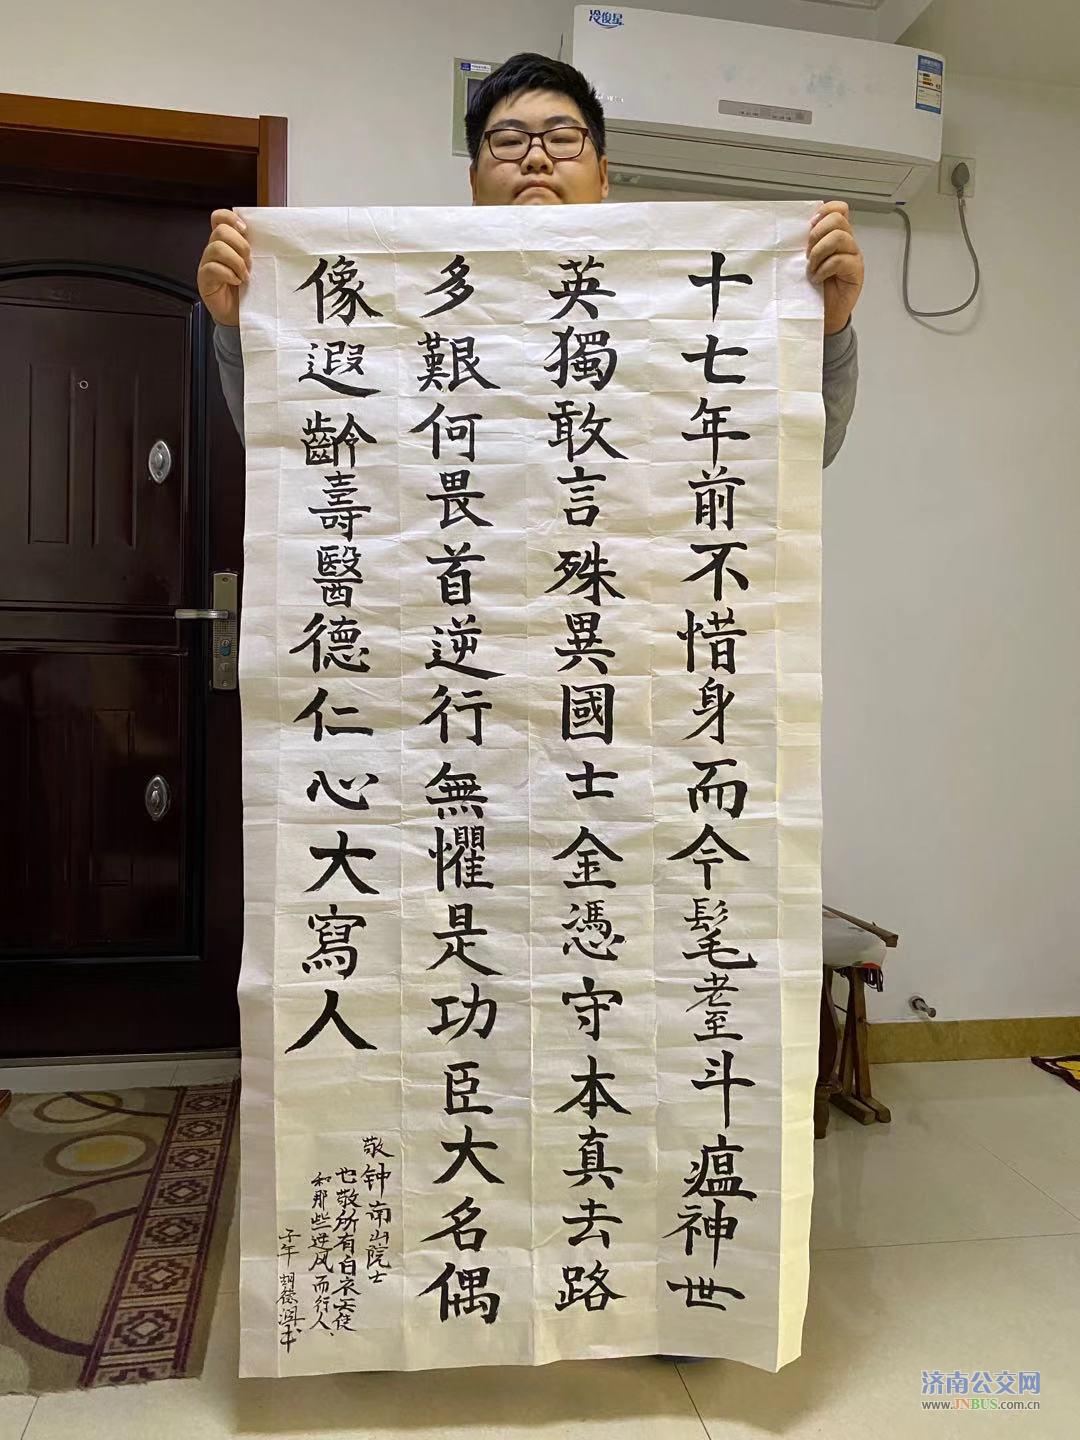 十七年前不惜身而今髦耄斗瘟神世
英獨敢言殊異國士金憑守本真去路
多艱何畏首逆行無懼是功臣大名偶
像遐齡壽醫德仁心大寫人
敬钟南山院士
也敬所有白衣天使
和那些逆风而行人、
子午 胡德润书
冷俊星
济南公交网
www.JNBUS.com.cn